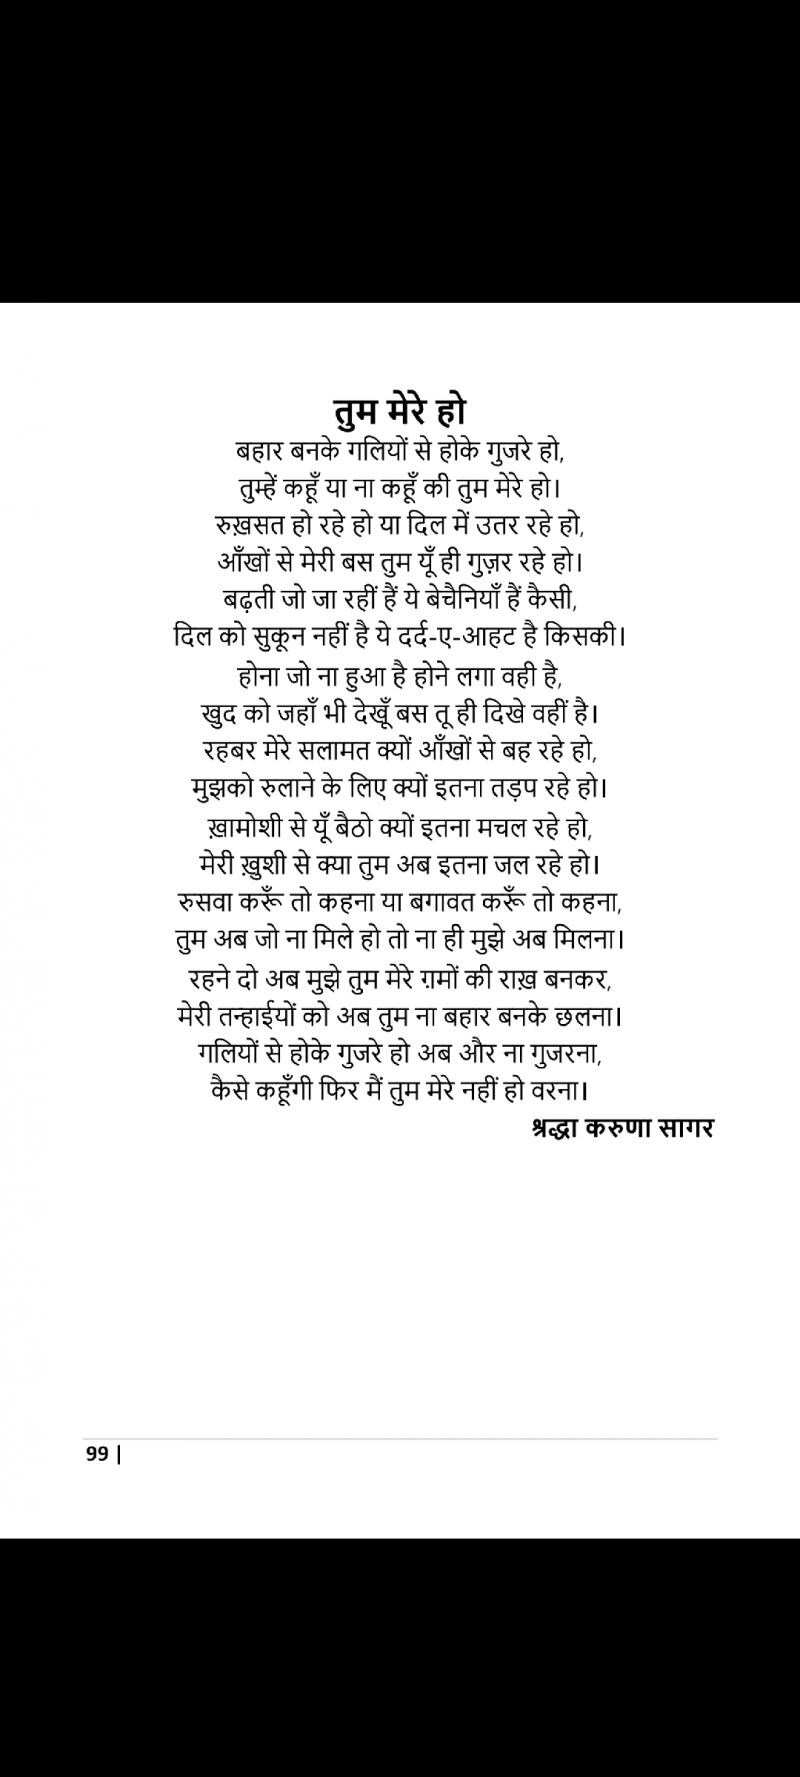 तुम मेरे हो
बहार बनके गलियों से होके गुजरे हो,
तुम्हें कहूँ या ना कहूँ की तुम मेरे हो।
रुख़सत हो रहे हो या दिल में उतर रहे हो,
आँखों से मेरी बस तुम यूँ ही गुज़र रहे हो।
बढ़ती जो जा रहीं हैं ये बेचैनियाँ हैं कैसी,
दिल को सुकून नहीं है ये दर्द-ए-आहट है किसकी।
होना जो ना हुआ है होने लगा वही है,
खुद को जहाँ भी देखूँ बस तू ही दिखे वहीं है।
रहबर मेरे सलामत क्यों आँखों से बह रहे हो,
मुझको रुलाने के लिए क्यों इतना तड़प रहे हो।
ख़ामोशी से यूँ बैठो क्यों इतना मचल रहे हो,
मेरी ख़ुशी से क्या तुम अब इतना जल रहे हो।
रुसवा करूँ तो कहना या बगावत करूँ तो कहना,
तुम अब जो ना मिले हो तो ना ही मुझे अब मिलना।
रहने दो अब मुझे तुम मेरे ग़मों की राख़ बनकर,
मेरी तन्हाईयों को अब तुम ना बहार बनके छलना।
गलियों से होके गुजरे हो अब और ना गुजरना,
कैसे कहूँगी फिर मैं तुम मेरे नहीं हो वरना।
श्रद्धा करुणा सागर
99 |